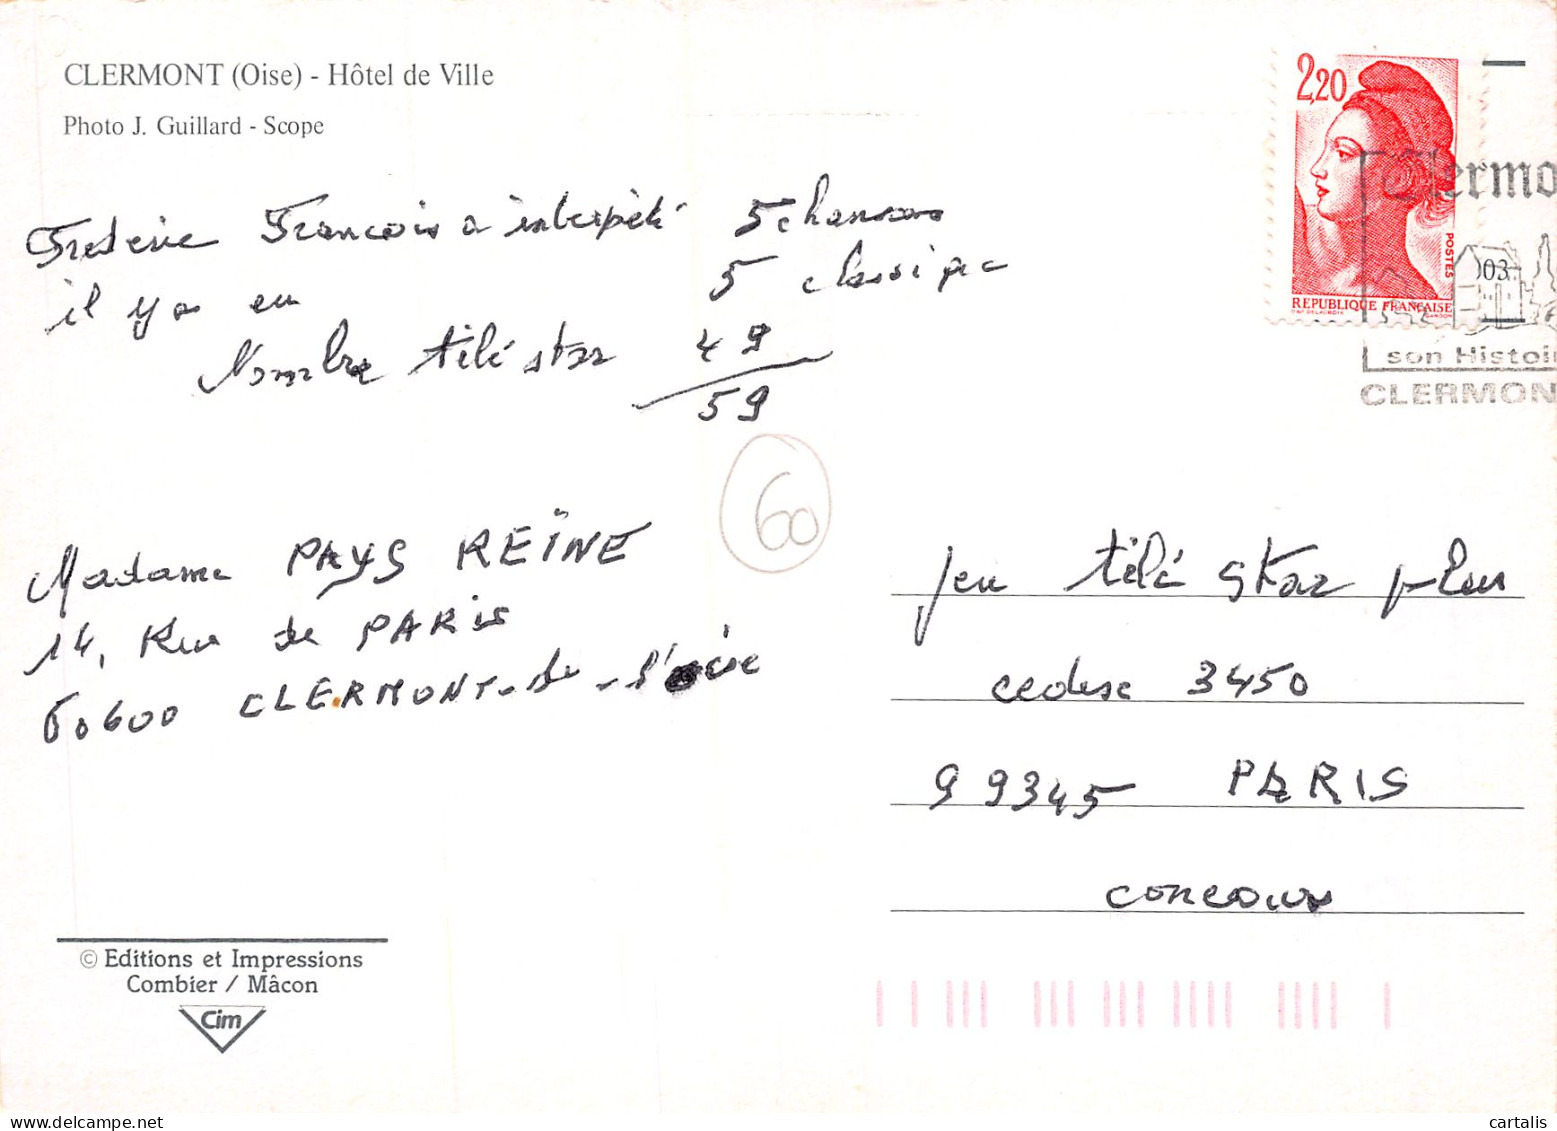 CLERMONT (Oise) - Hôtel de Ville
Photo J. Guillard - Scope
2,20
POSTES
REPUBLIQUE FRANÇAISE
D'AP. DELACROIX GANDON
Clermo
03
son Histoi
CLERMON
Frederic Francois a interpété 5 chansons
il y a eu 5 classique
Nombre télé star 49
59
60
Madame PAYS REÏNE
14, Rue de PARIS
60600 CLERMONT-de-l'oise
Jeu télé star plus
cedex 3450
99345 PARIS
concours
© Editions et Impressions
Combier / Mâcon
Cim
cartalis